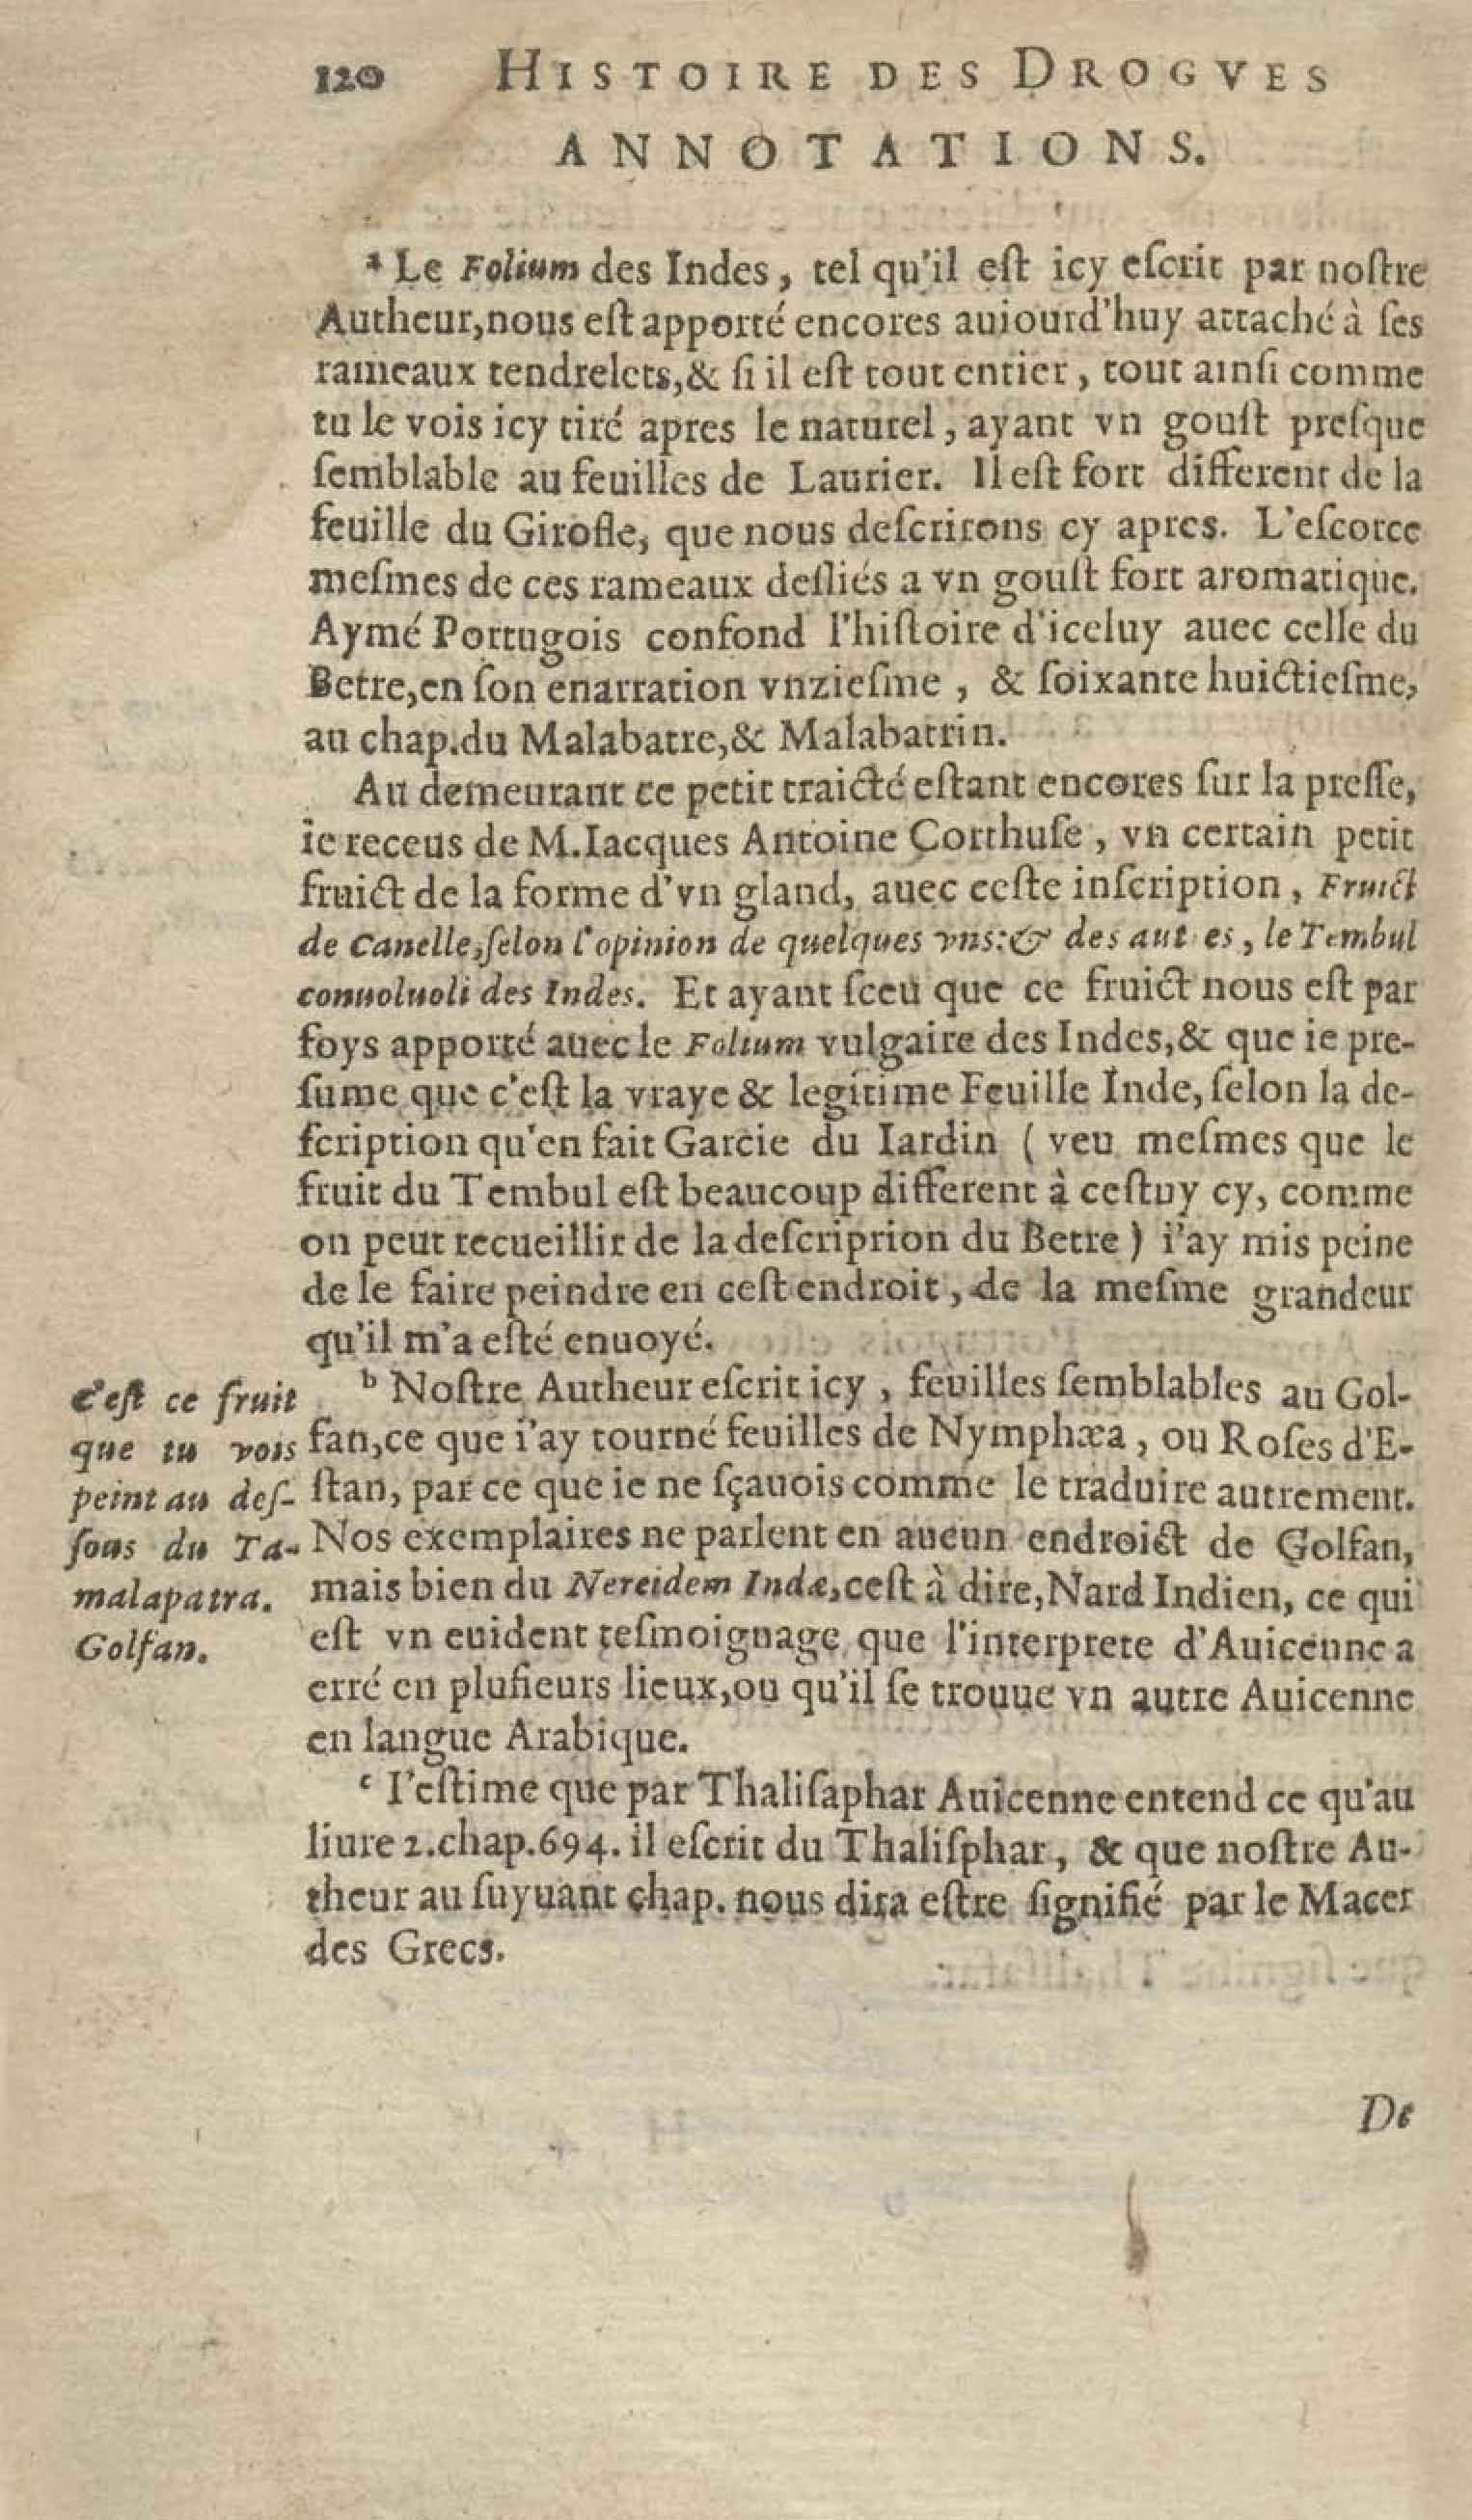 120 HISTOIRE DES DROGVES
ANNOTATIONS.
ᵃ Le Folium des Indes, tel qu'il eſt icy eſcrit par noſtre
Autheur,nous eſt apporté encores auiourd'huy attaché à ſes
rameaux tendrelets,& ſi il eſt tout entier, tout ainſi comme
tu le vois icy tiré apres le naturel, ayant vn gouſt preſque
ſemblable au feuilles de Laurier. Il eſt fort different de la
feuille du Girofle, que nous deſcrirons cy apres. L'eſcorce
meſmes de ces rameaux deſliés a vn gouſt fort aromatique.
Aymé Portugois confond l'hiſtoire d'iceluy auec celle du
Betre,en ſon enarration vnzieſme, & ſoixante huictieſme,
au chap.du Malabatre,& Malabatrin.
Au demeurant ce petit traicté eſtant encores ſur la preſſe,
ie receus de M.Iacques Antoine Corthuſe, vn certain petit
fruict de la forme d'vn gland, auec ceſte inſcription, Fruict
de Canelle,ſelon l'opinion de quelques vns:& des aut es, le Tembul
conuoluoli des Indes. Et ayant ſceu que ce fruict nous eſt par
foys apporté auec le Folium vulgaire des Indes,& que ie pre-
ſume que c'eſt la vraye & legitime Feuille Inde, ſelon la de-
ſcription qu'en fait Garcie du Iardin ( veu meſmes que le
fruit du Tembul eſt beaucoup different à ceſtuy cy, comme
on peut recueillir de la deſcriprion du Betre ) i'ay mis peine
de le faire peindre en ceſt endroit, de la meſme grandeur
qu'il m'a eſté enuoyé.
C'eſt ce fruit
que tu vois
peint au deſ-
ſous du Ta-
malapatra.
Golfan.
ᵇ Noſtre Autheur eſcrit icy, feuilles ſemblables au Gol-
fan,ce que i'ay tourné feuilles de Nymphæa, ou Roſes d'E-
ſtan, par ce que ie ne ſçauois comme le traduire autrement.
Nos exemplaires ne parlent en aucun endroict de Golfan,
mais bien du Nereidem Indæ,ceſt à dire,Nard Indien, ce qui
eſt vn euident teſmoignage que l'interprete d'Auicenne a
erré en pluſieurs lieux,ou qu'il ſe trouue vn autre Auicenne
en langue Arabique.
ᶜ I'eſtime que par Thaliſaphar Auicenne entend ce qu'au
liure 2.chap.694. il eſcrit du Thaliſphar, & que noſtre Au-
theur au ſuyuant chap. nous dira eſtre ſignifié par le Macer
des Grecs.
De